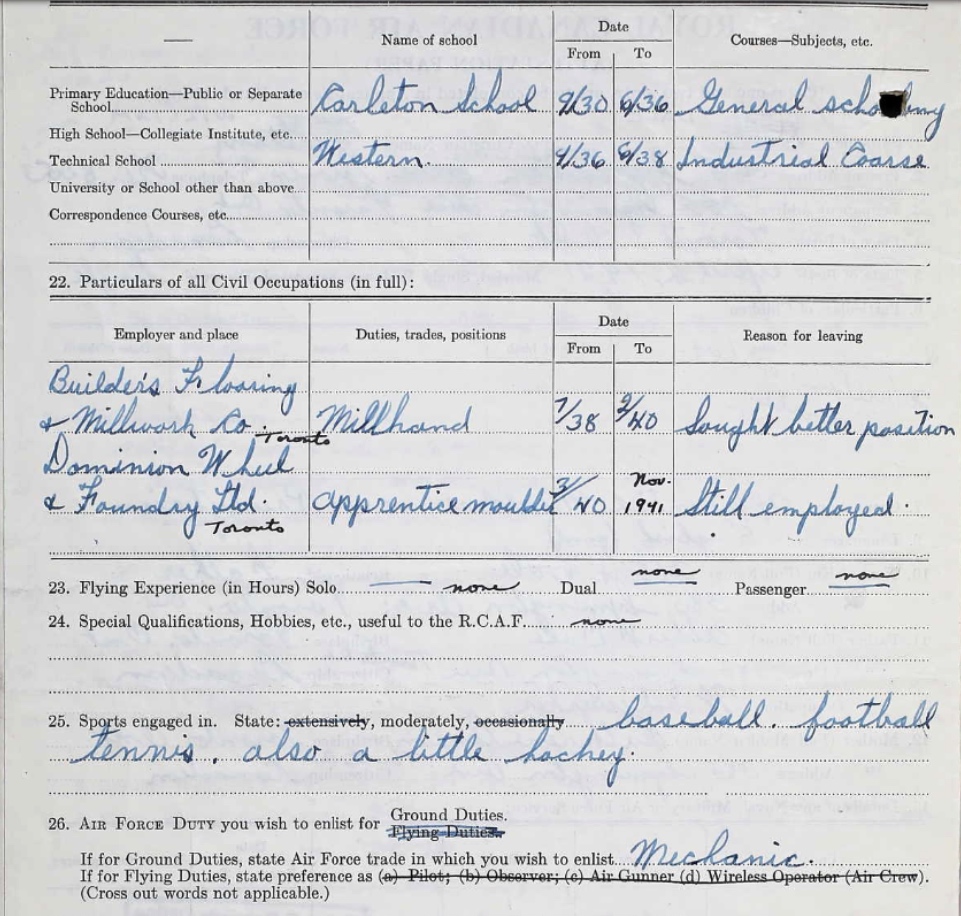 Name of school Date Courses—Subjects, etc.
From To
Primary Education—Public or Separate
School Carleton School 9/30 6/36 General schooling
High School—Collegiate Institute, etc.
Technical School Western. 9/36 6/38 Industrial Coarse
University or School other than above
Correspondence Courses, etc.
22. Particulars of all Civil Occupations (in full):
Employer and place Duties, trades, positions Date Reason for leaving
From To
Builder's Flooring
& Millwork Co. Toronto Millhand 7/38 2/40 Sought better position
Dominion Wheel
& Foundry Ltd. Toronto apprentice moulder 3/40 Nov. 1941 Still employed.
23. Flying Experience (in Hours) Solo none Dual none Passenger none
24. Special Qualifications, Hobbies, etc., useful to the R.C.A.F. none
25. Sports engaged in. State: extensively, moderately, occasionally baseball. football
tennis. also a little hockey.
26. AIR FORCE DUTY you wish to enlist for Ground Duties.
Flying Duties.
If for Ground Duties, state Air Force trade in which you wish to enlist. Mechanic.
If for Flying Duties, state preference as (a) Pilot; (b) Observer; (c) Air Gunner (d) Wireless Operator (Air Crew).
(Cross out words not applicable.)